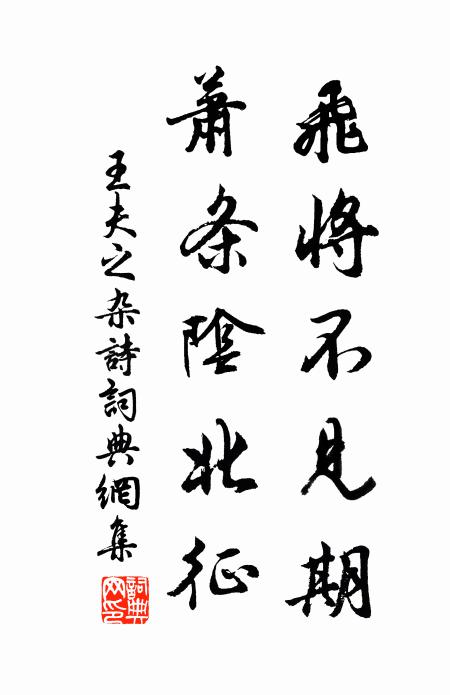 飛將不見期
蕭条陰北征
王夫之杂詩詞典網集
詞典网印